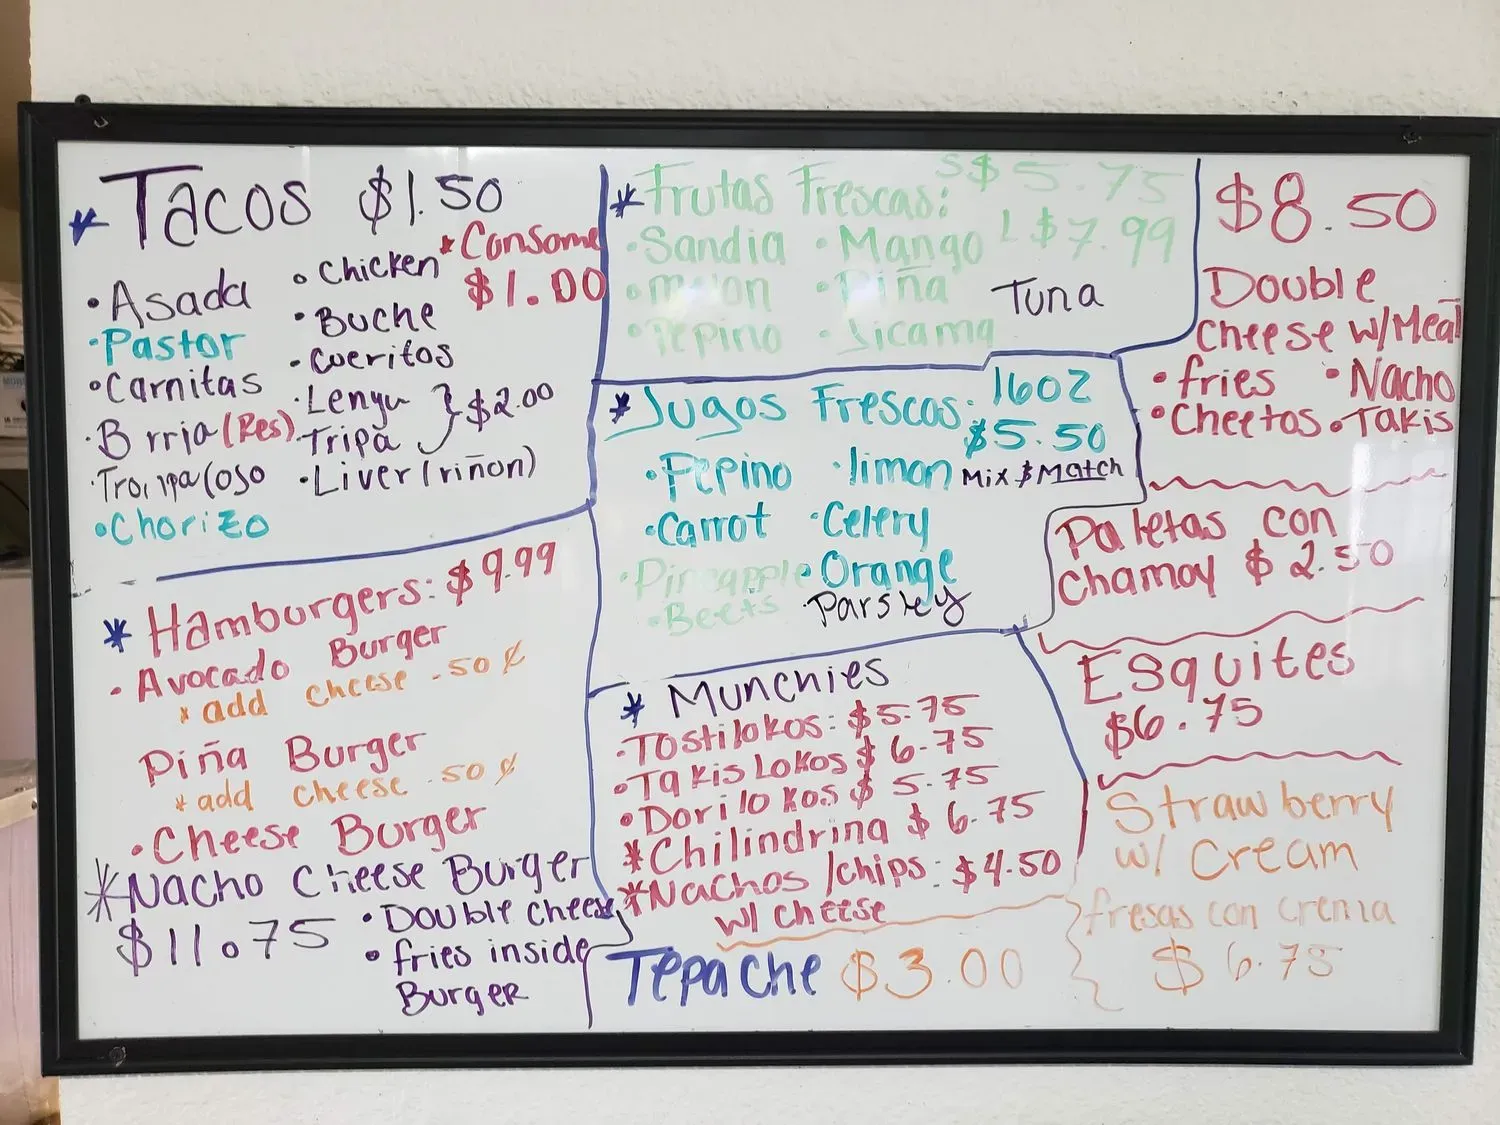 * Tacos $1.50
• Asada
• Pastor
• Carnitas
• Birria (Res)
• Chorizo
• Chicken
• Buche
• Cueritos
• Lengua } $2.00
Tripa
• Liver (riñon)
* Consome
$1.00
* Hamburgers: $9.99
• Avocado Burger
* add cheese .50 ¢
Piña Burger
* add cheese .50 ¢
• Cheese Burger
* Nacho Cheese Burger
$11.75
• Double cheese
• fries inside
Burger
* Frutas Frescas: S $5.75
L $7.99
• Sandia • Mango
• melon • Piña
• Pepino • Jicama
Tuna
* Jugos Frescos: 16oz
$5.50
Mix & Match
• Pepino • limon
• Carrot • Celery
• Pineapple • Orange
• Beets • Parsley
* Munchies
• Tostilokos: $5.75
• Takis Lokos $6.75
• Dorilokos $5.75
* Chilindrina $6.75
* Nachos /chips: $4.50
w/ cheese
Tepache $3.00
$8.50
Double
Cheese w/Meat
• fries • Nacho
• Cheetos • Takis
Paletas con
Chamoy $2.50
Esquites
$6.75
Strawberry
w/ Cream
fresas con crema
$6.75